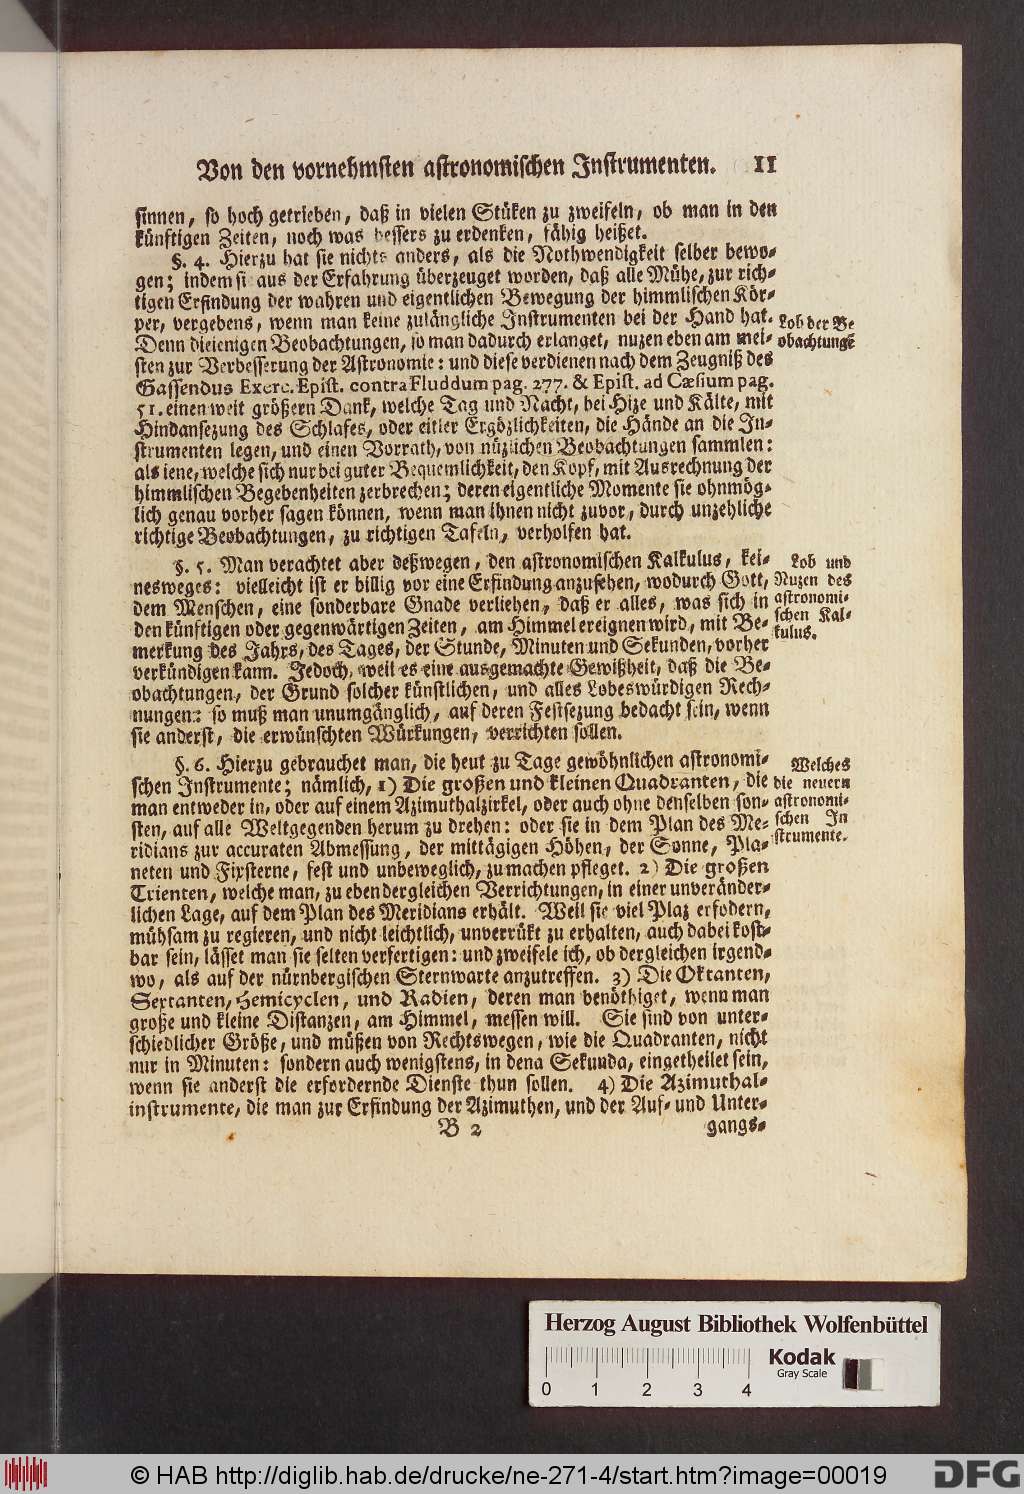 Von den vornehmsten astronomischen Instrumenten. 11
sinnen, so hoch getrieben, daß in vielen Stüken zu zweifeln, ob man in den
künftigen Zeiten, noch was bessers zu erdenken, fähig heißet.
§. 4. Hierzu hat sie nichts anders, als die Nothwendigkeit selber bewo-
gen; indem si aus der Erfahrung überzeuget worden, daß alle Mühe, zur rich-
tigen Erfindung der wahren und eigentlichen Bewegung der himmlischen Kör-
per, vergebens, wenn man keine zulängliche Instrumenten bei der Hand hat.
Denn dieienigen Beobachtungen, so man dadurch erlanget, nuzen eben am mei-
sten zur Verbesserung der Astronomie: und diese verdienen nach dem Zeugniß des
Gassendus Exerc. Epist. contra Fluddum pag. 277. & Epist. ad Cæsium pag.
51. einen weit größern Dank, welche Tag und Nacht, bei Hize und Kälte, mit
Hindansezung des Schlafes, oder eitler Ergözlichkeiten, die Hände an die In-
strumenten legen, und einen Vorrath, von nüzlichen Beobachtungen sammlen:
als iene, welche sich nur bei guter Bequemlichkeit, den Kopf, mit Ausrechnung der
himmlischen Begebenheiten zerbrechen; deren eigentliche Momente sie ohnmög-
lich genau vorher sagen können, wenn man ihnen nicht zuvor, durch unzehliche
richtige Beobachtungen, zu richtigen Tafeln, verholfen hat.
Lob der Be
obachtungẽ
§. 5. Man verachtet aber deßwegen, den astronomischen Kalkulus, kei-
nesweges: vielleicht ist er billig vor eine Erfindung anzusehen, wodurch Gott,
dem Menschen, eine sonderbare Gnade verliehen, daß er alles, was sich in
den künftigen oder gegenwärtigen Zeiten, am Himmel ereignen wird, mit Be-
merkung des Jahrs, des Tages, der Stunde, Minuten und Sekunden, vorher
verkündigen kann. Jedoch, weil es eine ausgemachte Gewißheit, daß die Be-
obachtungen, der Grund solcher künstlichen, und alles Lobeswürdigen Rech-
nungen: so muß man unumgänglich, auf deren Festsezung bedacht sein, wenn
sie anderst, die erwünschten Würkungen, verrichten sollen.
Lob und
Nuzen des
astronomi-
schen Kal-
kulus.
§. 6. Hierzu gebrauchet man, die heut zu Tage gewöhnlichen astronomi-
schen Instrumente; nämlich, 1) Die großen und kleinen Quadranten, die
man entweder in, oder auf einem Azimuthalzirkel, oder auch ohne denselben son-
sten, auf alle Weltgegenden herum zu drehen: oder sie in dem Plan des Me-
ridians zur accuraten Abmessung, der mittägigen Höhen, der Sonne, Pla-
neten und Fixsterne, fest und unbeweglich, zu machen pfleget. 2) Die großen
Trienten, welche man, zu eben dergleichen Verrichtungen, in einer unveränder-
lichen Lage, auf dem Plan des Meridians erhält. Weil sie viel Plaz erfodern,
mühsam zu regieren, und nicht leichtlich, unverrükt zu erhalten, auch dabei kost-
bar sein, lässet man sie selten verfertigen: und zweifele ich, ob dergleichen irgend-
wo, als auf der nürnbergischen Sternwarte anzutreffen. 3) Die Oktanten,
Sextanten, Hemicyclen, und Radien, deren man benöthiget, wenn man
große und kleine Distanzen, am Himmel, messen will. Sie sind von unter-
schiedlicher Größe, und müßen von Rechtswegen, wie die Quadranten, nicht
nur in Minuten: sondern auch wenigstens, in dena Sekunda, eingetheilet sein,
wenn sie anderst die erfordernde Dienste thun sollen. 4) Die Azimuthal-
instrumente, die man zur Erfindung der Azimuthen, und der Auf- und Unter-
Welches
die neuern
astronomi-
schen In
strumente.
B 2 gangs-
Herzog August Bibliothek Wolfenbüttel
0 1 2 3 4
Kodak
Gray Scale
© HAB http://diglib.hab.de/drucke/ne-271-4/start.htm?image=00019
DFG